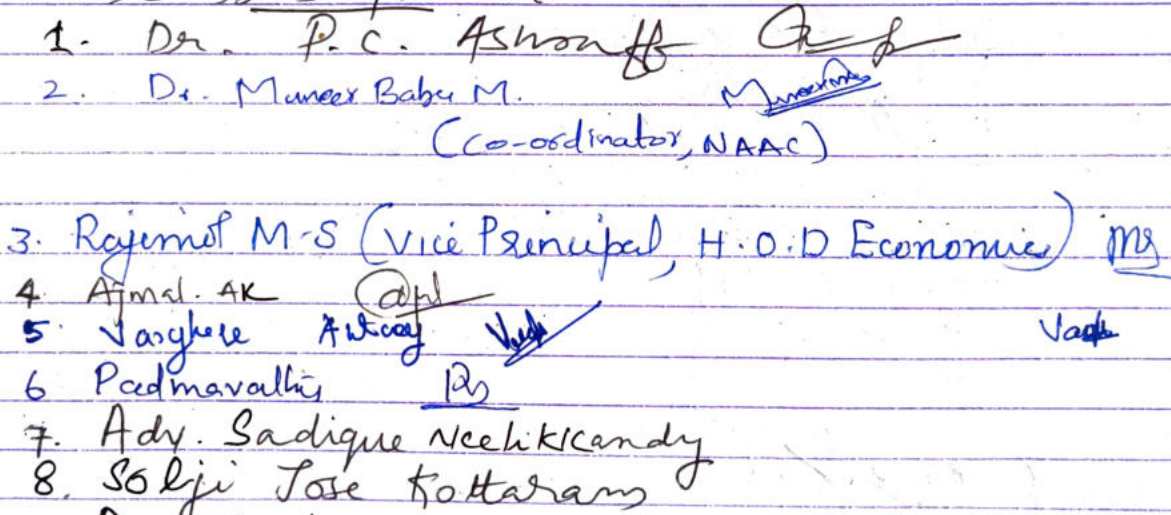 1. Dr. P.C. Ashraff
2. Dr. Muneer Babu M.
(Co-ordinator, NAAC)
3. Rajimol M.S (Vice Principal, H.O.D Economics) MS
4 Ajmal. AK
5. Varghese Antony
6 Padmavathi
7. Adv. Sadique Neelikkandy
8. Solji Jose Kottaram